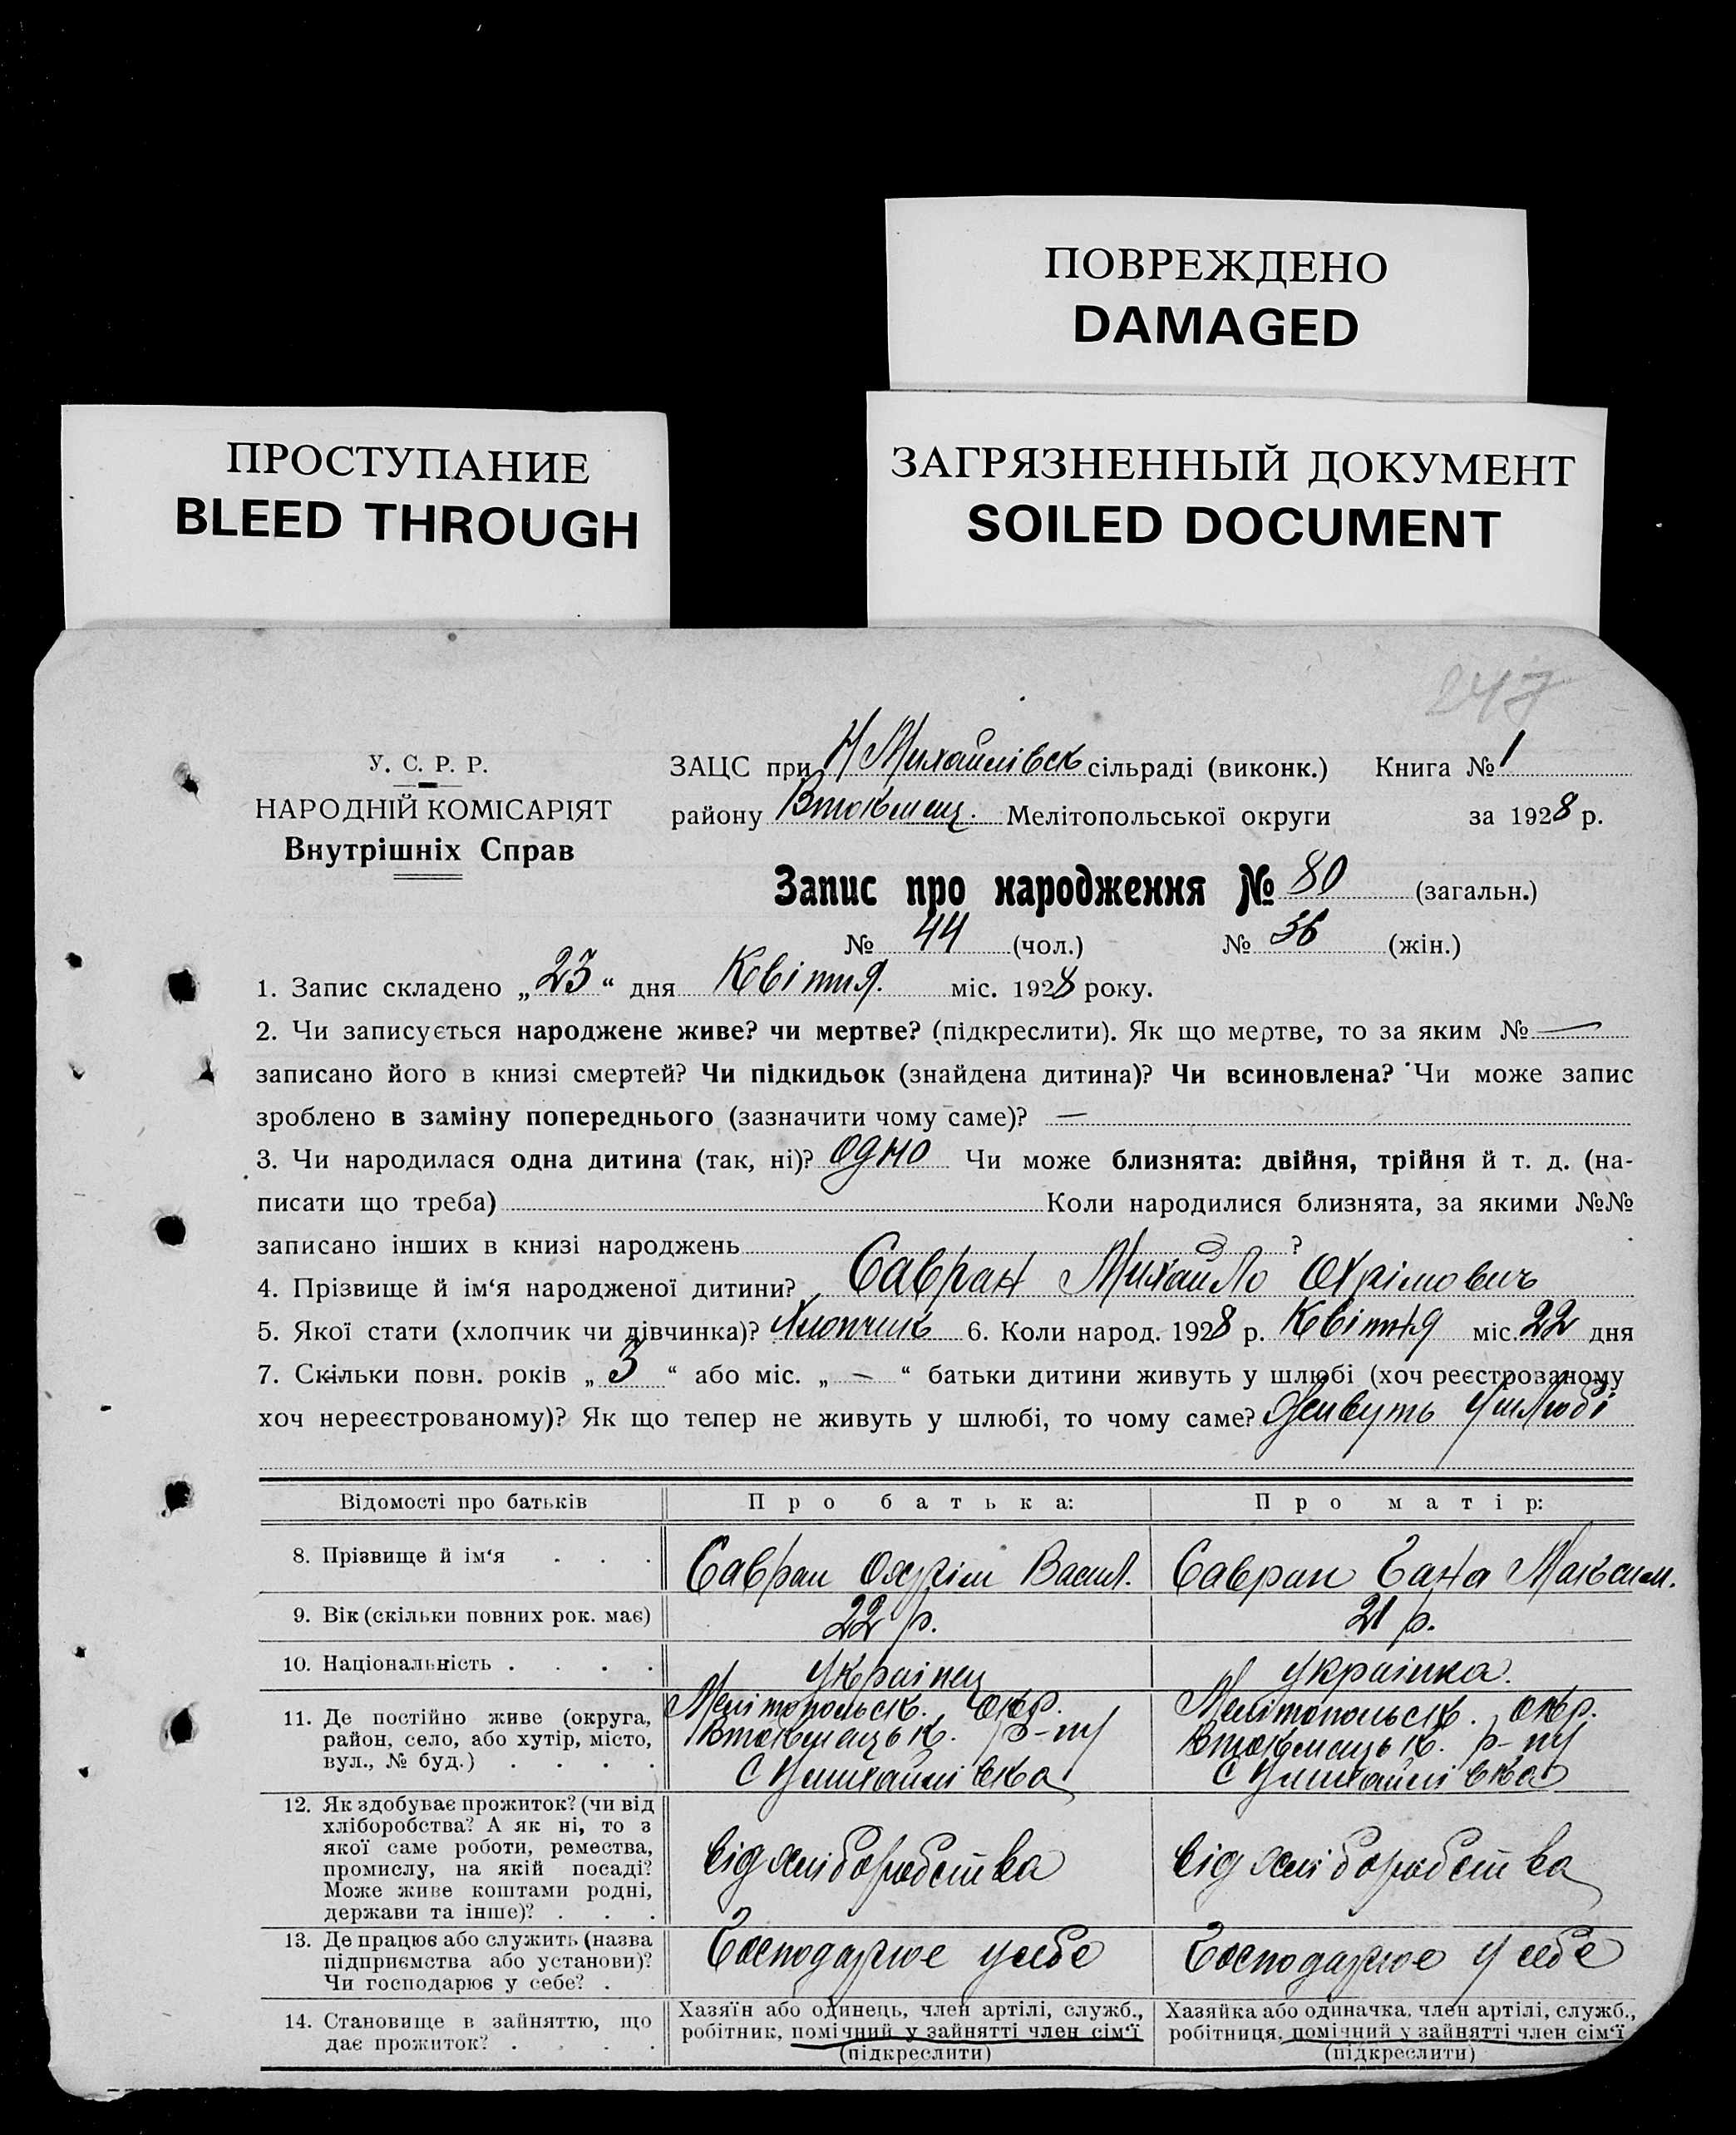 ПОВРЕЖДЕНО
DAMAGED
ПРОСТУПАНИЕ
BLEED THROUGH
ЗАГРЯЗНЕННЫЙ ДОКУМЕНТ
SOILED DOCUMENT
247
У. С. Р. Р.
НАРОДНІЙ КОМІСАРІЯТ
Внутрішніх Справ
ЗАЦС при Н Михайлівськ сільраді (виконк.) Книга № 1
району Втокмац. Мелітопольської округи за 1928 р.
Запис про народження № 80 (загальн.)
№ 44 (чол.) № 36 (жін.)
1. Запис складено „23“ дня Квітня. міс. 1928 року.
2. Чи записується народжене живе? чи мертве? (підкреслити). Як що мертве, то за яким № —
записано його в книзі смертей? Чи підкидьок (знайдена дитина)? Чи всиновлена? Чи може запис
зроблено в заміну попереднього (зазначити чому саме)? —
3. Чи народилася одна дитина (так, ні)? Одно Чи може близнята: двійня, трійня й т. д. (на-
писати що треба) Коли народилися близнята, за якими №№
записано інших в книзі народжень ?
4. Прізвище й ім‘я народженої дитини? Савран Михайло Охрімович
5. Якої стати (хлопчик чи дівчинка)? Хлопчик 6. Коли народ. 1928 р. Квітня міс. 22 дня
7. Скільки повн. років „3“ або міс. „—“ батьки дитини живуть у шлюбі (хоч реєстрованому
хоч нереєстрованому)? Як що тепер не живуть у шлюбі, то чому саме? Живуть у шлюбі
Відомості про батьків Про батька: Про матір:
8. Прізвище й ім‘я . . . Савран Охрім Васил. Савран Гана Максим.
9. Вік (скільки повних рок. має) 22 р. 21 р.
10. Національність . . . . Українец Українка.
11. Де постійно живе (округа, район, село, або хутір, місто, вул., № буд.) . . . .
Мелітопольськ. Окр. Мелітопольськ. Окр.
Втокмацьк. р-ну Втокмацьк. р-ну
12. Як здобуває прожиток? (чи від хліборобства? А як ні, то з якої саме роботи, ремества, промислу, на якій посаді? Може живе коштами родні, держави та інше)? . . .
від хліборобства від хліборобства
13. Де працює або служить (назва підприємства або установи)? Чи господарює у себе? .
Господарює у себе Господарює у себе
14. Становище в зайняттю, що дає прожиток? . . . .
Хазяїн або одинець, член артілі, служб., робітник, помічний у зайнятті член сім‘ї (підкреслити)
Хазяйка або одиначка, член артілі, служб., робітниця, помічний у зайнятті член сім‘ї (підкреслити)